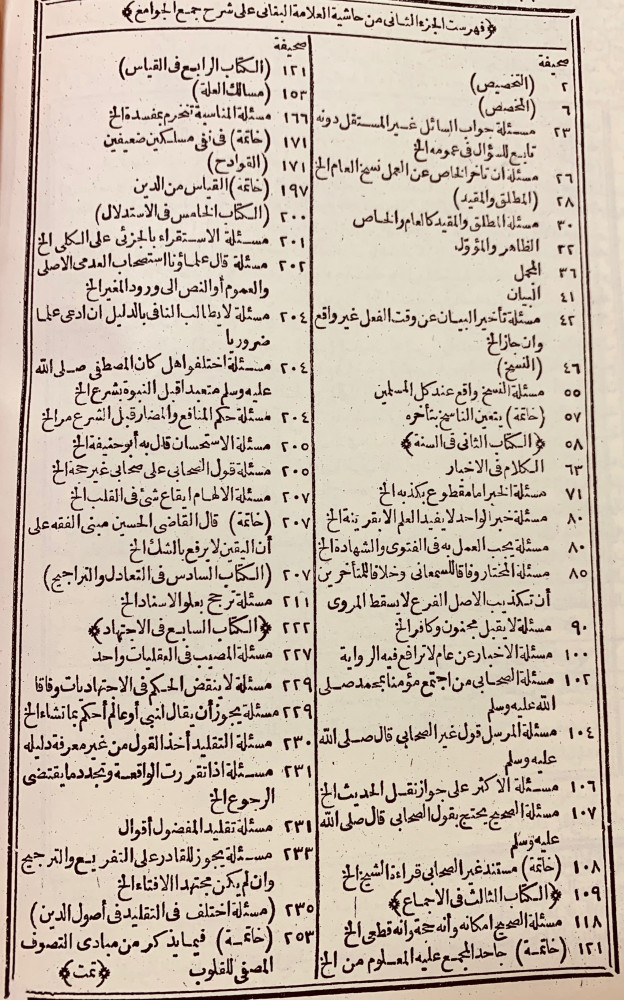 ﴿فهرست الجزء الثانى من حاشية العلامة البنانى على شرح جمع الجوامع﴾
صحيفة
٢ (التخصيص)
٦ (المخصص)
٢٣ مسئلة جواب السائل غير المستقل دونه
تابع للسؤال فى عمومه الخ
٢٦ مسئلة ان تأخر الخاص عن العمل نسخ العام الخ
٢٨ (المطلق والمقيد)
٣٠ مسئلة المطلق والمقيد كالعام والخاص
٣٢ الظاهر والمؤوّل
٣٦ المجمل
٤١ البيان
٤٢ مسئلة تأخير البيان عن وقت الفعل غير واقع
وان جاز الخ
٤٦ (النسخ)
٥٥ مسئلة النسخ واقع عند كل المسلمين
٥٧ (خاتمة) يتعين الناسخ بتأخره
٥٨ ﴿الكتاب الثانى فى السنة﴾
٦٣ الكلام فى الاخبار
٧١ مسئلة الخبر اما مقطوع بكذبه الخ
٨٠ مسئلة خبر الواحد لا يفيد العلم الا بقرينة الخ
٨٠ مسئلة يجب العمل به فى الفتوى والشهادة الخ
٨٥ مسئلة المختار وفاقا للسمعانى وخلافا للمتأخرين
أن تكذيب الاصل الفرع لا يسقط المروى
٩٠ مسئلة لا يقبل مجنون وكافر الخ
١٠٠ مسئلة الاخبار عن عام لا ترافع فيه الرواية
١٠٢ مسئلة الصحابى من اجتمع مؤمنا بمحمد صلى
الله عليه وسلم
١٠٤ مسئلة المرسل قول غير الصحابى قال صلى الله
عليه وسلم
١٠٦ مسئلة الاكثر على جواز نقل الحديث الخ
١٠٧ مسئلة الصحيح يحتج بقول الصحابى قال صلى الله
عليه وسلم
١٠٨ (خاتمة) مستند غير الصحابى قراءة الشيخ الخ
١٠٩ ﴿الكتاب الثالث فى الاجماع﴾
١١٨ مسئلة الصحيح امكانه وأنه حجة وانه قطعى الخ
١٢١ (خاتمة) جاحد المجمع عليه المعلوم من الخ
صحيفة
١٢١ (الكتاب الرابع فى القياس)
١٥٣ (مسالك العلة)
١٦٦ مسئلة المناسبة تنخرم بمفسدة الخ
١٧١ (خاتمة) فى نفى مسلكين ضعيفين
١٧١ (القوادح)
١٩٧ (خاتمة) القياس من الدين
٢٠٠ (الكتاب الخامس فى الاستدلال)
٢٠١ مسئلة الاستقراء بالجزئى على الكلى الخ
٢٠٢ مسئلة قال علماؤنا استصحاب العدمى الاصلى
والعموم أو النص الى ورود المغير الخ
٢٠٤ مسئلة لا يطالب النافى بالدليل ان ادعى علما
ضروريا
٢٠٤ مسئلة اختلفوا هل كان المصطفى صلى الله
عليه وسلم متعبدا قبل النبوة بشرع الخ
٢٠٤ مسئلة حكم المنافع والمضار قبل الشرع مر الخ
٢٠٥ مسئلة الاستحسان قال به أبو حنيفة الخ
٢٠٥ مسئلة قول الصحابى على صحابى غير حجة الخ
٢٠٧ مسئلة الالهام ايقاع شئ فى القلب الخ
٢٠٧ (خاتمة) قال القاضى الحسين مبنى الفقه على
أن اليقين لا يرفع بالشك الخ
٢٠٧ (الكتاب السادس فى التعادل والتراجيح)
٢١١ مسئلة ترجح بعلو الاسناد الخ
٢٢٢ ﴿الكتاب السابع فى الاجتهاد﴾
٢٢٧ مسئلة المصيب فى العقليات واحد
٢٢٩ مسئلة لا ينقض الحكم فى الاجتهاديات وفاقا
٢٢٩ مسئلة يجوز أن يقال لنبى أو عالم أحكم بما تشاء الخ
٢٣٠ مسئلة التقليد أخذ القول من غير معرفة دليله
٢٣١ مسئلة اذا تقررت الواقعة وتجدد ما يقتضى
الرجوع الخ
٢٣١ مسئلة تقليد المفضول أقوال
٢٣٣ مسئلة يجوز للقادر على التفريع والترجيح
وان لم يكن مجتهدا الافتاء الخ
٢٣٥ (مسئلة اختلف فى التقليد فى أصول الدين)
٢٥٣ (خاتمة) فيما يذكر من مبادى التصوف
المصفى للقلوب ﴿تمت﴾